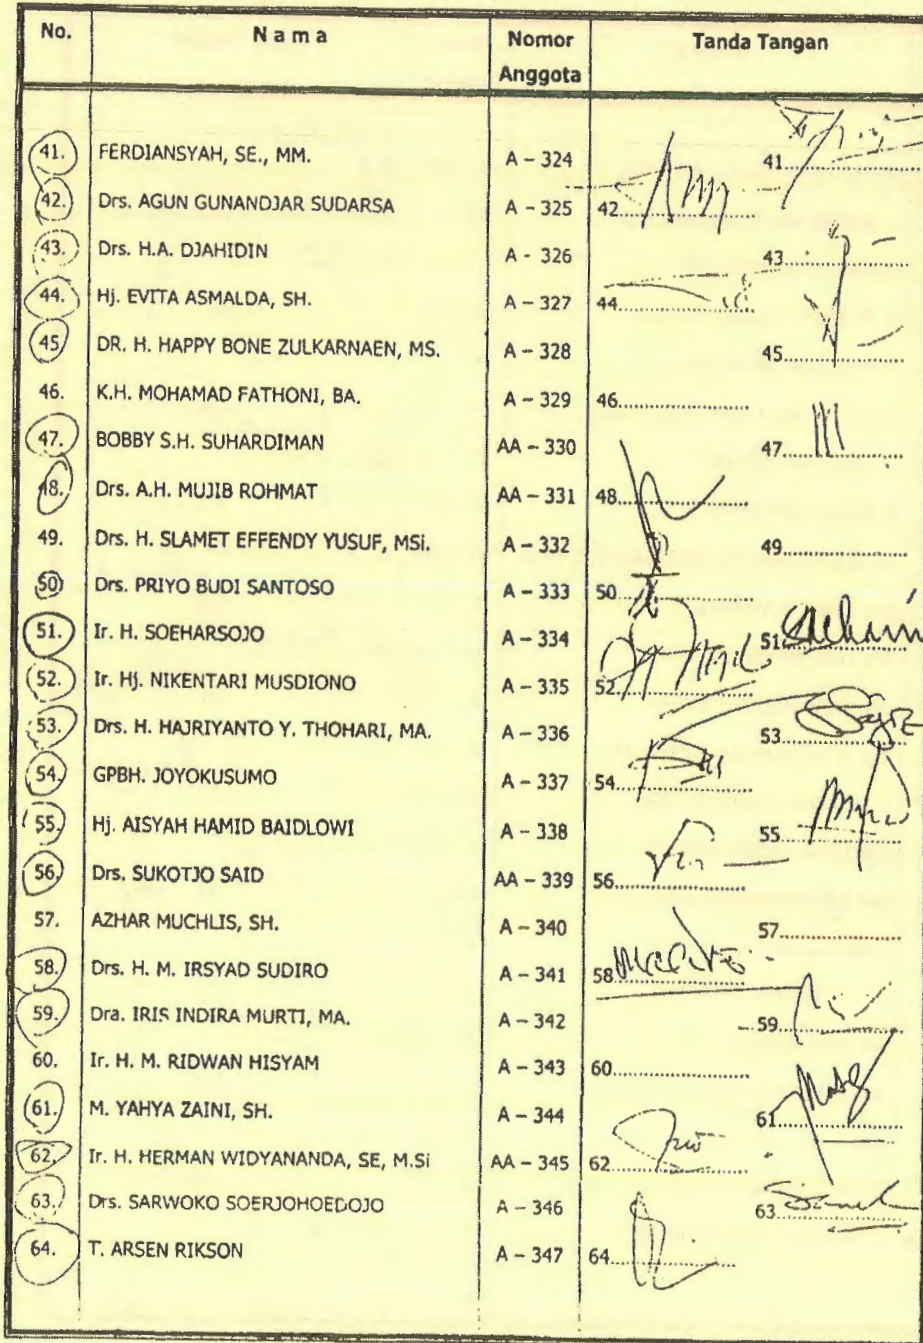 No. N a m a Nomor Anggota Tanda Tangan
41. FERDIANSYAH, SE., MM. A – 324 41
42. Drs. AGUN GUNANDJAR SUDARSA A – 325 42
43. Drs. H.A. DJAHIDIN A - 326 43
44. Hj. EVITA ASMALDA, SH. A – 327 44
45 DR. H. HAPPY BONE ZULKARNAEN, MS. A – 328 45
46. K.H. MOHAMAD FATHONI, BA. A – 329 46
47. BOBBY S.H. SUHARDIMAN AA – 330 47
48. Drs. A.H. MUJIB ROHMAT AA – 331 48
49. Drs. H. SLAMET EFFENDY YUSUF, MSi. A – 332 49
50 Drs. PRIYO BUDI SANTOSO A – 333 50
51. Ir. H. SOEHARSOJO A – 334 51
52. Ir. Hj. NIKENTARI MUSDIONO A – 335 52
53. Drs. H. HAJRIYANTO Y. THOHARI, MA. A – 336 53
54. GPBH. JOYOKUSUMO A – 337 54
55. Hj. AISYAH HAMID BAIDLOWI A – 338 55
56. Drs. SUKOTJO SAID AA – 339 56
57. AZHAR MUCHLIS, SH. A – 340 57
58. Drs. H. M. IRSYAD SUDIRO A – 341 58
59. Dra. IRIS INDIRA MURTI, MA. A – 342 59
60. Ir. H. M. RIDWAN HISYAM A – 343 60
61. M. YAHYA ZAINI, SH. A – 344 61
62. Ir. H. HERMAN WIDYANANDA, SE, M.Si AA – 345 62
63. Drs. SARWOKO SOERJOHOEDOJO A – 346 63
64. T. ARSEN RIKSON A – 347 64